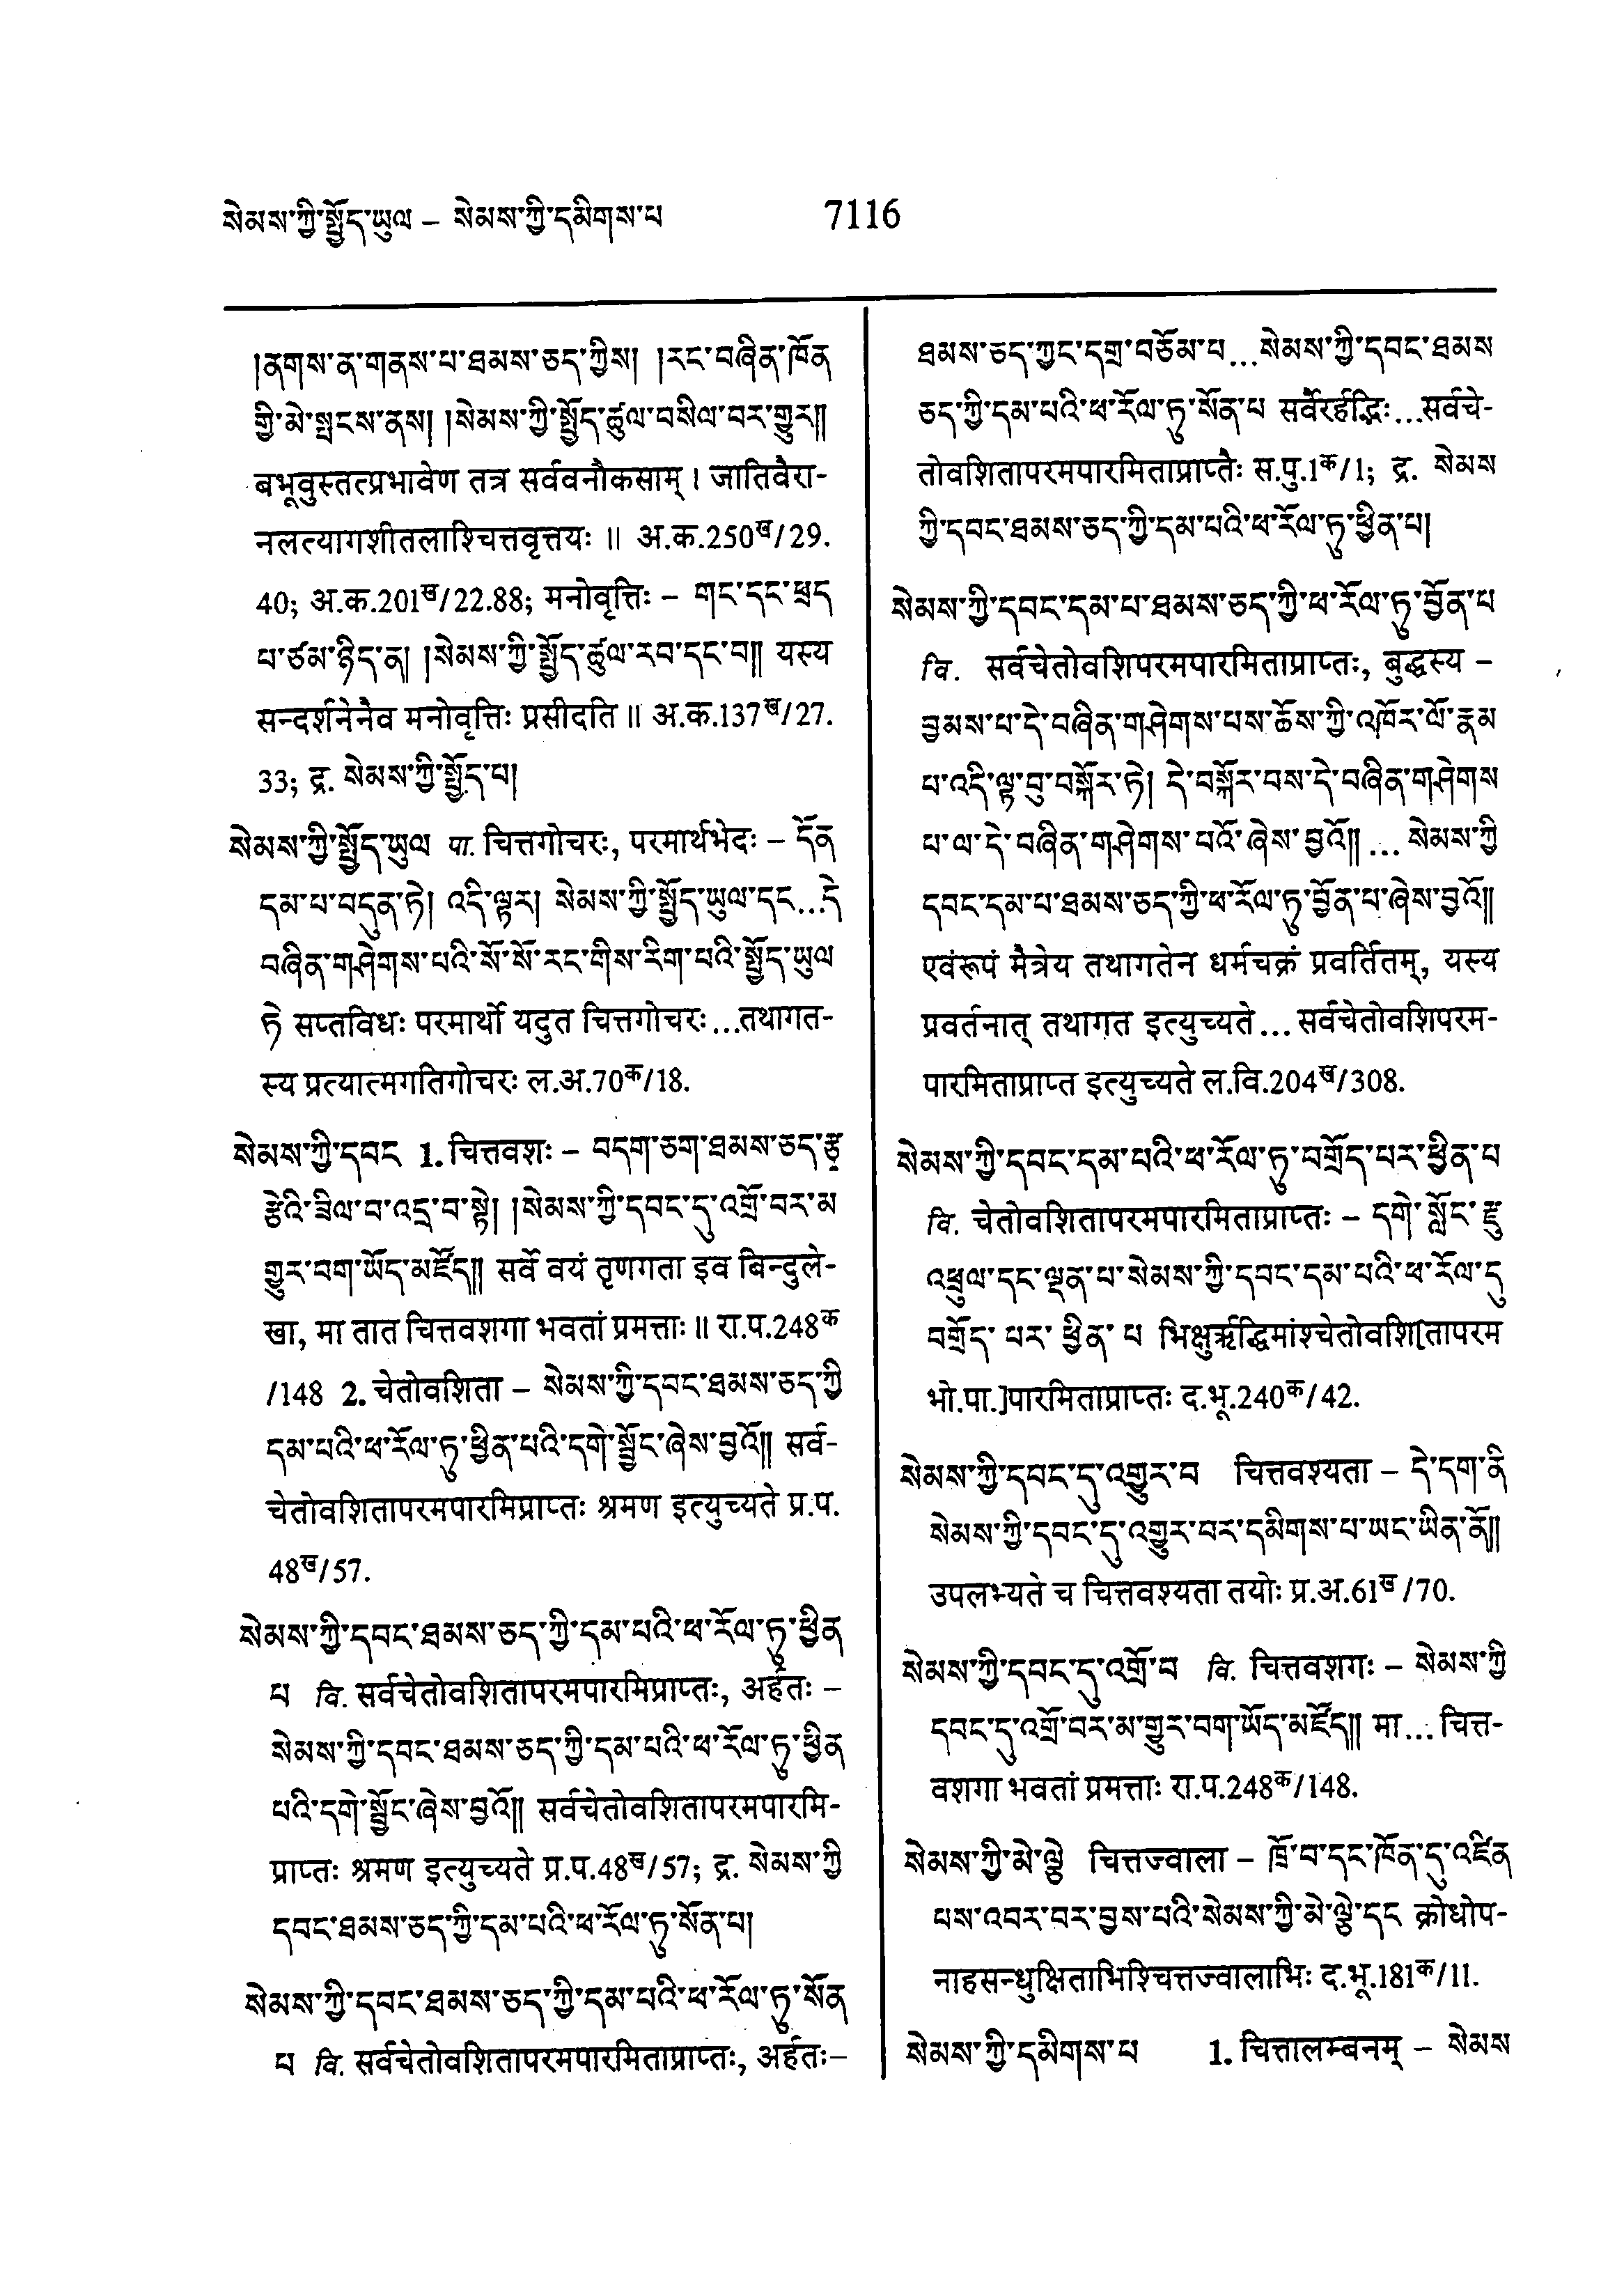 སེམས་ཀྱི་སྤྱོད་ཡུལ – སེམས་ཀྱི་དམིགས་པ
7116
།ནགས་ན་གནས་པ་ཐམས་ཅད་ཀྱིས། །རང་བཞིན་ཁོན
གྱི་མེ་སྤངས་ནས། །སེམས་ཀྱི་སྤྱོད་ཚུལ་བསིལ་བར་གྱུར།།
बभूवुस्तत्प्रभावेण तत्र सर्ववनौकसाम् । जातिवैरा-
नलत्यागशीतलाश्चित्तवृत्तयः ॥ अ.क.250ख/29.
40; अ.क.201ख/22.88; मनोवृत्तिः – གང་དང་ཕྲད
པ་ཙམ་ཉིད་ན། །སེམས་ཀྱི་སྤྱོད་ཚུལ་རབ་དང་བ།། यस्य
सन्दर्शनेनैव मनोवृत्तिः प्रसीदति ॥ अ.क.137ख/27.
33; द्र. སེམས་ཀྱི་སྤྱོད་པ།
སེམས་ཀྱི་སྤྱོད་ཡུལ पा. चित्तगोचरः, परमार्थभेदः – དོན
དམ་པ་བདུན་ཏེ། འདི་ལྟར། སེམས་ཀྱི་སྤྱོད་ཡུལ་དང...དེ
བཞིན་གཤེགས་པའི་སོ་སོ་རང་གིས་རིག་པའི་སྤྱོད་ཡུལ
ཏེ सप्तविधः परमार्थो यदुत चित्तगोचरः...तथागत-
स्य प्रत्यात्मगतिगोचरः ल.अ.70क/18.
སེམས་ཀྱི་དབང 1. चित्तवशः – བདག་ཅག་ཐམས་ཅད་རྩྭ
རྩེའི་ཟིལ་བ་འདྲ་བ་སྟེ། །སེམས་ཀྱི་དབང་དུ་འགྲོ་བར་མ
གྱུར་བག་ཡོད་མཛོད།། सर्वे वयं तृणगता इव बिन्दुले-
खा, मा तात चित्तवशगा भवतां प्रमत्ताः ॥ रा.प.248क
/148 2. चेतोवशिता – སེམས་ཀྱི་དབང་ཐམས་ཅད་ཀྱི
དམ་པའི་ཕ་རོལ་ཏུ་ཕྱིན་པའི་དགེ་སྦྱོང་ཞེས་བྱའོ།། सर्व-
चेतोवशितापरमपारमिप्राप्तः श्रमण इत्युच्यते प्र.प.
48ख/57.
སེམས་ཀྱི་དབང་ཐམས་ཅད་ཀྱི་དམ་པའི་ཕ་རོལ་ཏུ་ཕྱིན
པ वि. सर्वचेतोवशितापरमपारमिप्राप्तः, अर्हतः –
སེམས་ཀྱི་དབང་ཐམས་ཅད་ཀྱི་དམ་པའི་ཕ་རོལ་ཏུ་ཕྱིན
པའི་དགེ་སྦྱོང་ཞེས་བྱའོ།། सर्वचेतोवशितापरमपारमि-
प्राप्तः श्रमण इत्युच्यते प्र.प.48ख/57; द्र. སེམས་ཀྱི
དབང་ཐམས་ཅད་ཀྱི་དམ་པའི་ཕ་རོལ་ཏུ་སོན་པ།
སེམས་ཀྱི་དབང་ཐམས་ཅད་ཀྱི་དམ་པའི་ཕ་རོལ་ཏུ་སོན
པ वि. सर्वचेतोवशितापरमपारमिताप्राप्तः, अर्हतः–
ཐམས་ཅད་ཀྱང་དགྲ་བཅོམ་པ...སེམས་ཀྱི་དབང་ཐམས
ཅད་ཀྱི་དམ་པའི་ཕ་རོལ་ཏུ་སོན་པ सर्वैरर्हद्भिः...सर्वचे-
तोवशितापरमपारमिताप्राप्तैः स.पु.1क/1; द्र. སེམས
ཀྱི་དབང་ཐམས་ཅད་ཀྱི་དམ་པའི་ཕ་རོལ་ཏུ་ཕྱིན་པ།
སེམས་ཀྱི་དབང་དམ་པ་ཐམས་ཅད་ཀྱི་ཕ་རོལ་ཏུ་བྱོན་པ
वि. सर्वचेतोवशिपरमपारमिताप्राप्तः, बुद्धस्य –
བྱམས་པ་དེ་བཞིན་གཤེགས་པས་ཆོས་ཀྱི་འཁོར་ལོ་རྣམ
པ་འདི་ལྟ་བུ་བསྐོར་ཏེ། དེ་བསྐོར་བས་དེ་བཞིན་གཤེགས
པ་ལ་དེ་བཞིན་གཤེགས་པའོ་ཞེས་བྱའོ།།... སེམས་ཀྱི
དབང་དམ་པ་ཐམས་ཅད་ཀྱི་ཕ་རོལ་ཏུ་བྱོན་པ་ཞེས་བྱའོ།།
एवंरूपं मैत्रेय तथागतेन धर्मचक्रं प्रवर्तितम्, यस्य
प्रवर्तनात् तथागत इत्युच्यते... सर्वचेतोवशिपरम-
पारमिताप्राप्त इत्युच्यते ल.वि.204ख/308.
སེམས་ཀྱི་དབང་དམ་པའི་ཕ་རོལ་ཏུ་བགྲོད་པར་ཕྱིན་པ
वि. चेतोवशितापरमपारमिताप्राप्तः – དགེ་སློང་རྫུ
འཕྲུལ་དང་ལྡན་པ་སེམས་ཀྱི་དབང་དམ་པའི་ཕ་རོལ་དུ
བགྲོད་པར་ཕྱིན་པ भिक्षुरृद्धिमांश्चेतोवशि[तापरम
भो.पा.]पारमिताप्राप्तः द.भू.240क/42.
སེམས་ཀྱི་དབང་དུ་འགྱུར་བ चित्तवश्यता – དེ་དག་ནི
སེམས་ཀྱི་དབང་དུ་འགྱུར་བར་དམིགས་པ་ཡང་ཡིན་ནོ།།
उपलभ्यते च चित्तवश्यता तयोः प्र.अ.61ख/70.
སེམས་ཀྱི་དབང་དུ་འགྲོ་བ वि. चित्तवशगः – སེམས་ཀྱི
དབང་དུ་འགྲོ་བར་མ་གྱུར་བག་ཡོད་མཛོད།། मा... चित्त-
वशगा भवतां प्रमत्ताः रा.प.248क/148.
སེམས་ཀྱི་མེ་ལྕེ चित्तज्वाला – ཁྲོ་བ་དང་ཁོན་དུ་འཛིན
པས་འབར་བར་བྱས་པའི་སེམས་ཀྱི་མེ་ལྕེ་དང क्रोधोप-
नाहसन्धुक्षिताभिश्चित्तज्वालाभिः द.भू.181क/11.
སེམས་ཀྱི་དམིགས་པ 1. चित्तालम्बनम् – སེམས